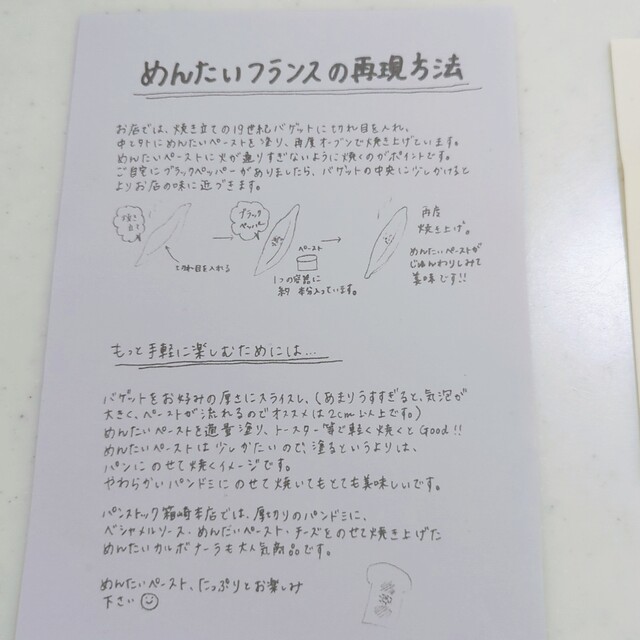 めんたいフランスの再現方法
お店では、焼き立ての19世紀バゲットに切れ目を入れ、
中と外にめんたいペーストを塗り、再度オーブンで焼き上げています。
めんたいペーストに火が通りすぎないように焼くのがポイントです。
ご自宅にブラックペッパーがありましたら、バゲットの中央に少しかけると
よりお店の味に近づきます。
焼き
立て
切れ目を入れる
ブラック
ペッパー
ペースト
1つの容器に
約 本分入っています。
再度
焼き上げ。
めんたいペーストが
じゅんわりしみて
美味です!!
もっと手軽に楽しむためには...
バゲットをお好みの厚さにスライスし、(あまりうすすぎると、気泡が
大きく、ペーストが流れるのでオススメは2cm以上です。)
めんたいペーストを適量塗り、トースター等で軽く焼くとGood!!
めんたいペーストは少しかたいので、塗るというよりは、
パンにのせて焼くイメージです。
やわらかいパンドミにのせて焼いてもとても美味しいです。
パンストック箱崎本店では、厚切りのパンドミに、
ベシャメルソース、めんたいペースト、チーズをのせて焼き上げた
めんたいカルボナーラも大人気商品です。
めんたいペースト、たっぷりとお楽しみ
下さい